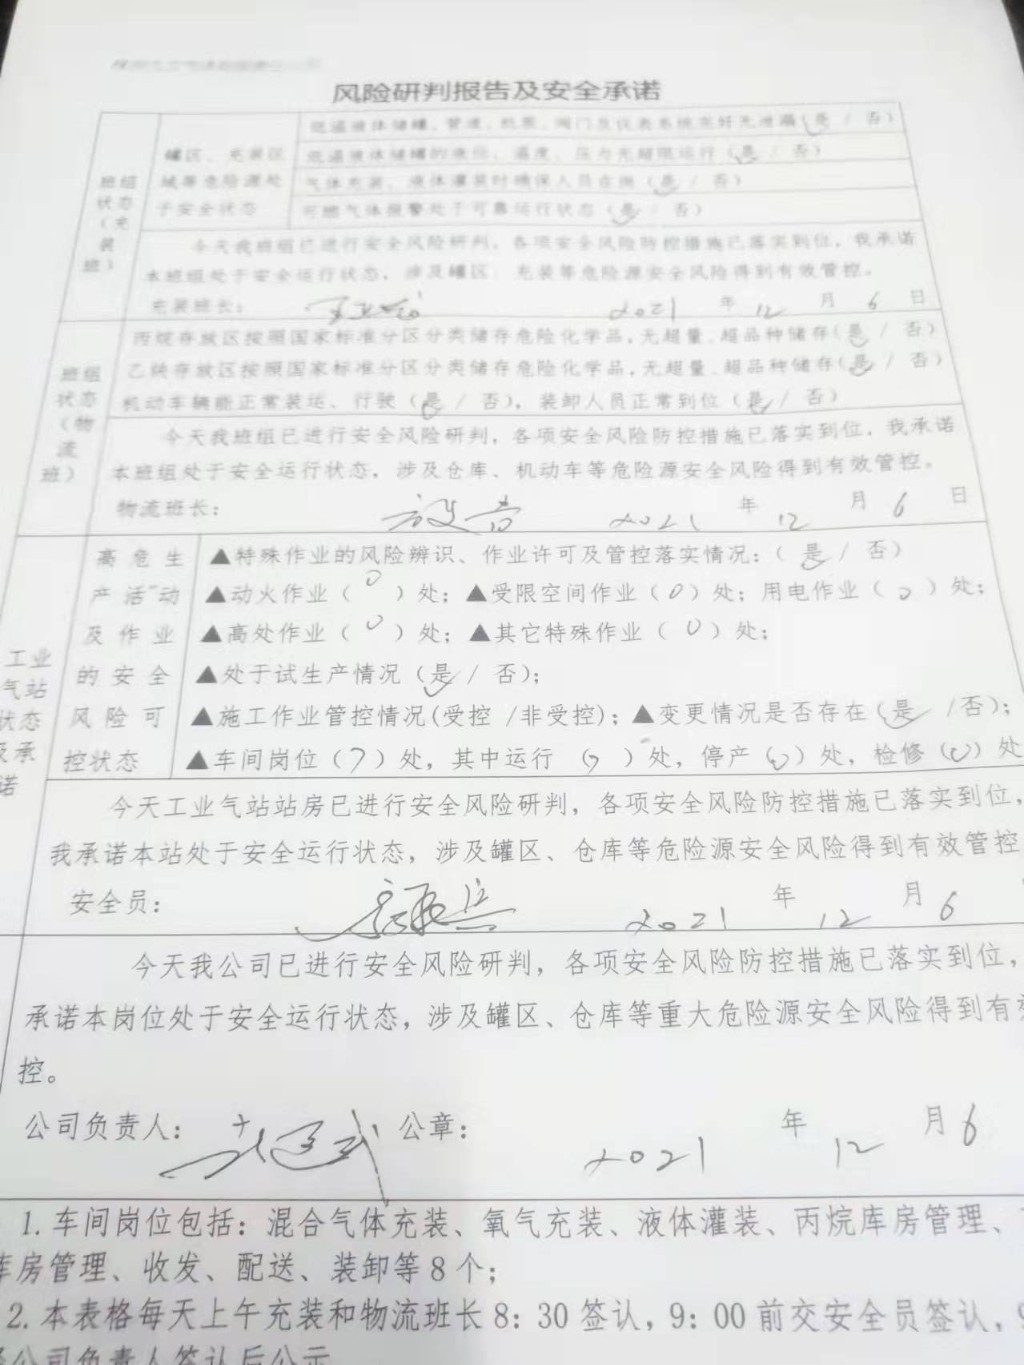 风险研判报告及安全承诺
班组状态（充装班）
罐区、充装区域等危险源处于安全状态
低温液体储罐、管道、机泵、阀门及仪表系统完好无泄漏（是 / 否）
低温液体储罐的液位、温度、压力无超限运行（是 / 否）
气体充装、液体灌装时确保人员在岗（是 / 否）
可燃气体报警处于可靠运行状态（是 / 否）
今天我班组已进行安全风险研判，各项安全风险防控措施已落实到位，我承诺
本班组处于安全运行状态，涉及罐区、充装等危险源安全风险得到有效管控。
充装班长： 2021 年 12 月 6 日
班组状态（物流班）
丙烷存放区按照国家标准分区分类储存危险化学品，无超量、超品种储存（是 / 否）
乙炔存放区按照国家标准分区分类储存危险化学品，无超量、超品种储存（是 / 否）
机动车辆能正常装运、行驶（是 / 否），装卸人员正常到位（是 / 否）
今天我班组已进行安全风险研判，各项安全风险防控措施已落实到位，我承诺
本班组处于安全运行状态，涉及仓库、机动车等危险源安全风险得到有效管控。
物流班长： 2021 年 12 月 6 日
工业气站状态及承诺
高危生产活动及作业的安全风险可控状态
▲特殊作业的风险辨识、作业许可及管控落实情况：（是 / 否）
▲动火作业（0）处；▲受限空间作业（0）处；用电作业（0）处；
▲高处作业（0）处；▲其它特殊作业（0）处；
▲处于试生产情况（是 / 否）；
▲施工作业管控情况(受控 /非受控)；▲变更情况是否存在（是 /否）；
▲车间岗位（7）处，其中运行（7）处，停产（0）处，检修（0）处
今天工业气站站房已进行安全风险研判，各项安全风险防控措施已落实到位，
我承诺本站处于安全运行状态，涉及罐区、仓库等危险源安全风险得到有效管控
安全员： 2021 年 12 月 6
今天我公司已进行安全风险研判，各项安全风险防控措施已落实到位，
承诺本岗位处于安全运行状态，涉及罐区、仓库等重大危险源安全风险得到有效
控。
公司负责人： 公章： 2021 年 12 月 6
1.车间岗位包括：混合气体充装、氧气充装、液体灌装、丙烷库房管理、
库房管理、收发、配送、装卸等8个；
2.本表格每天上午充装和物流班长8：30签认，9：00前交安全员签认，9
公司负责人签认后公示